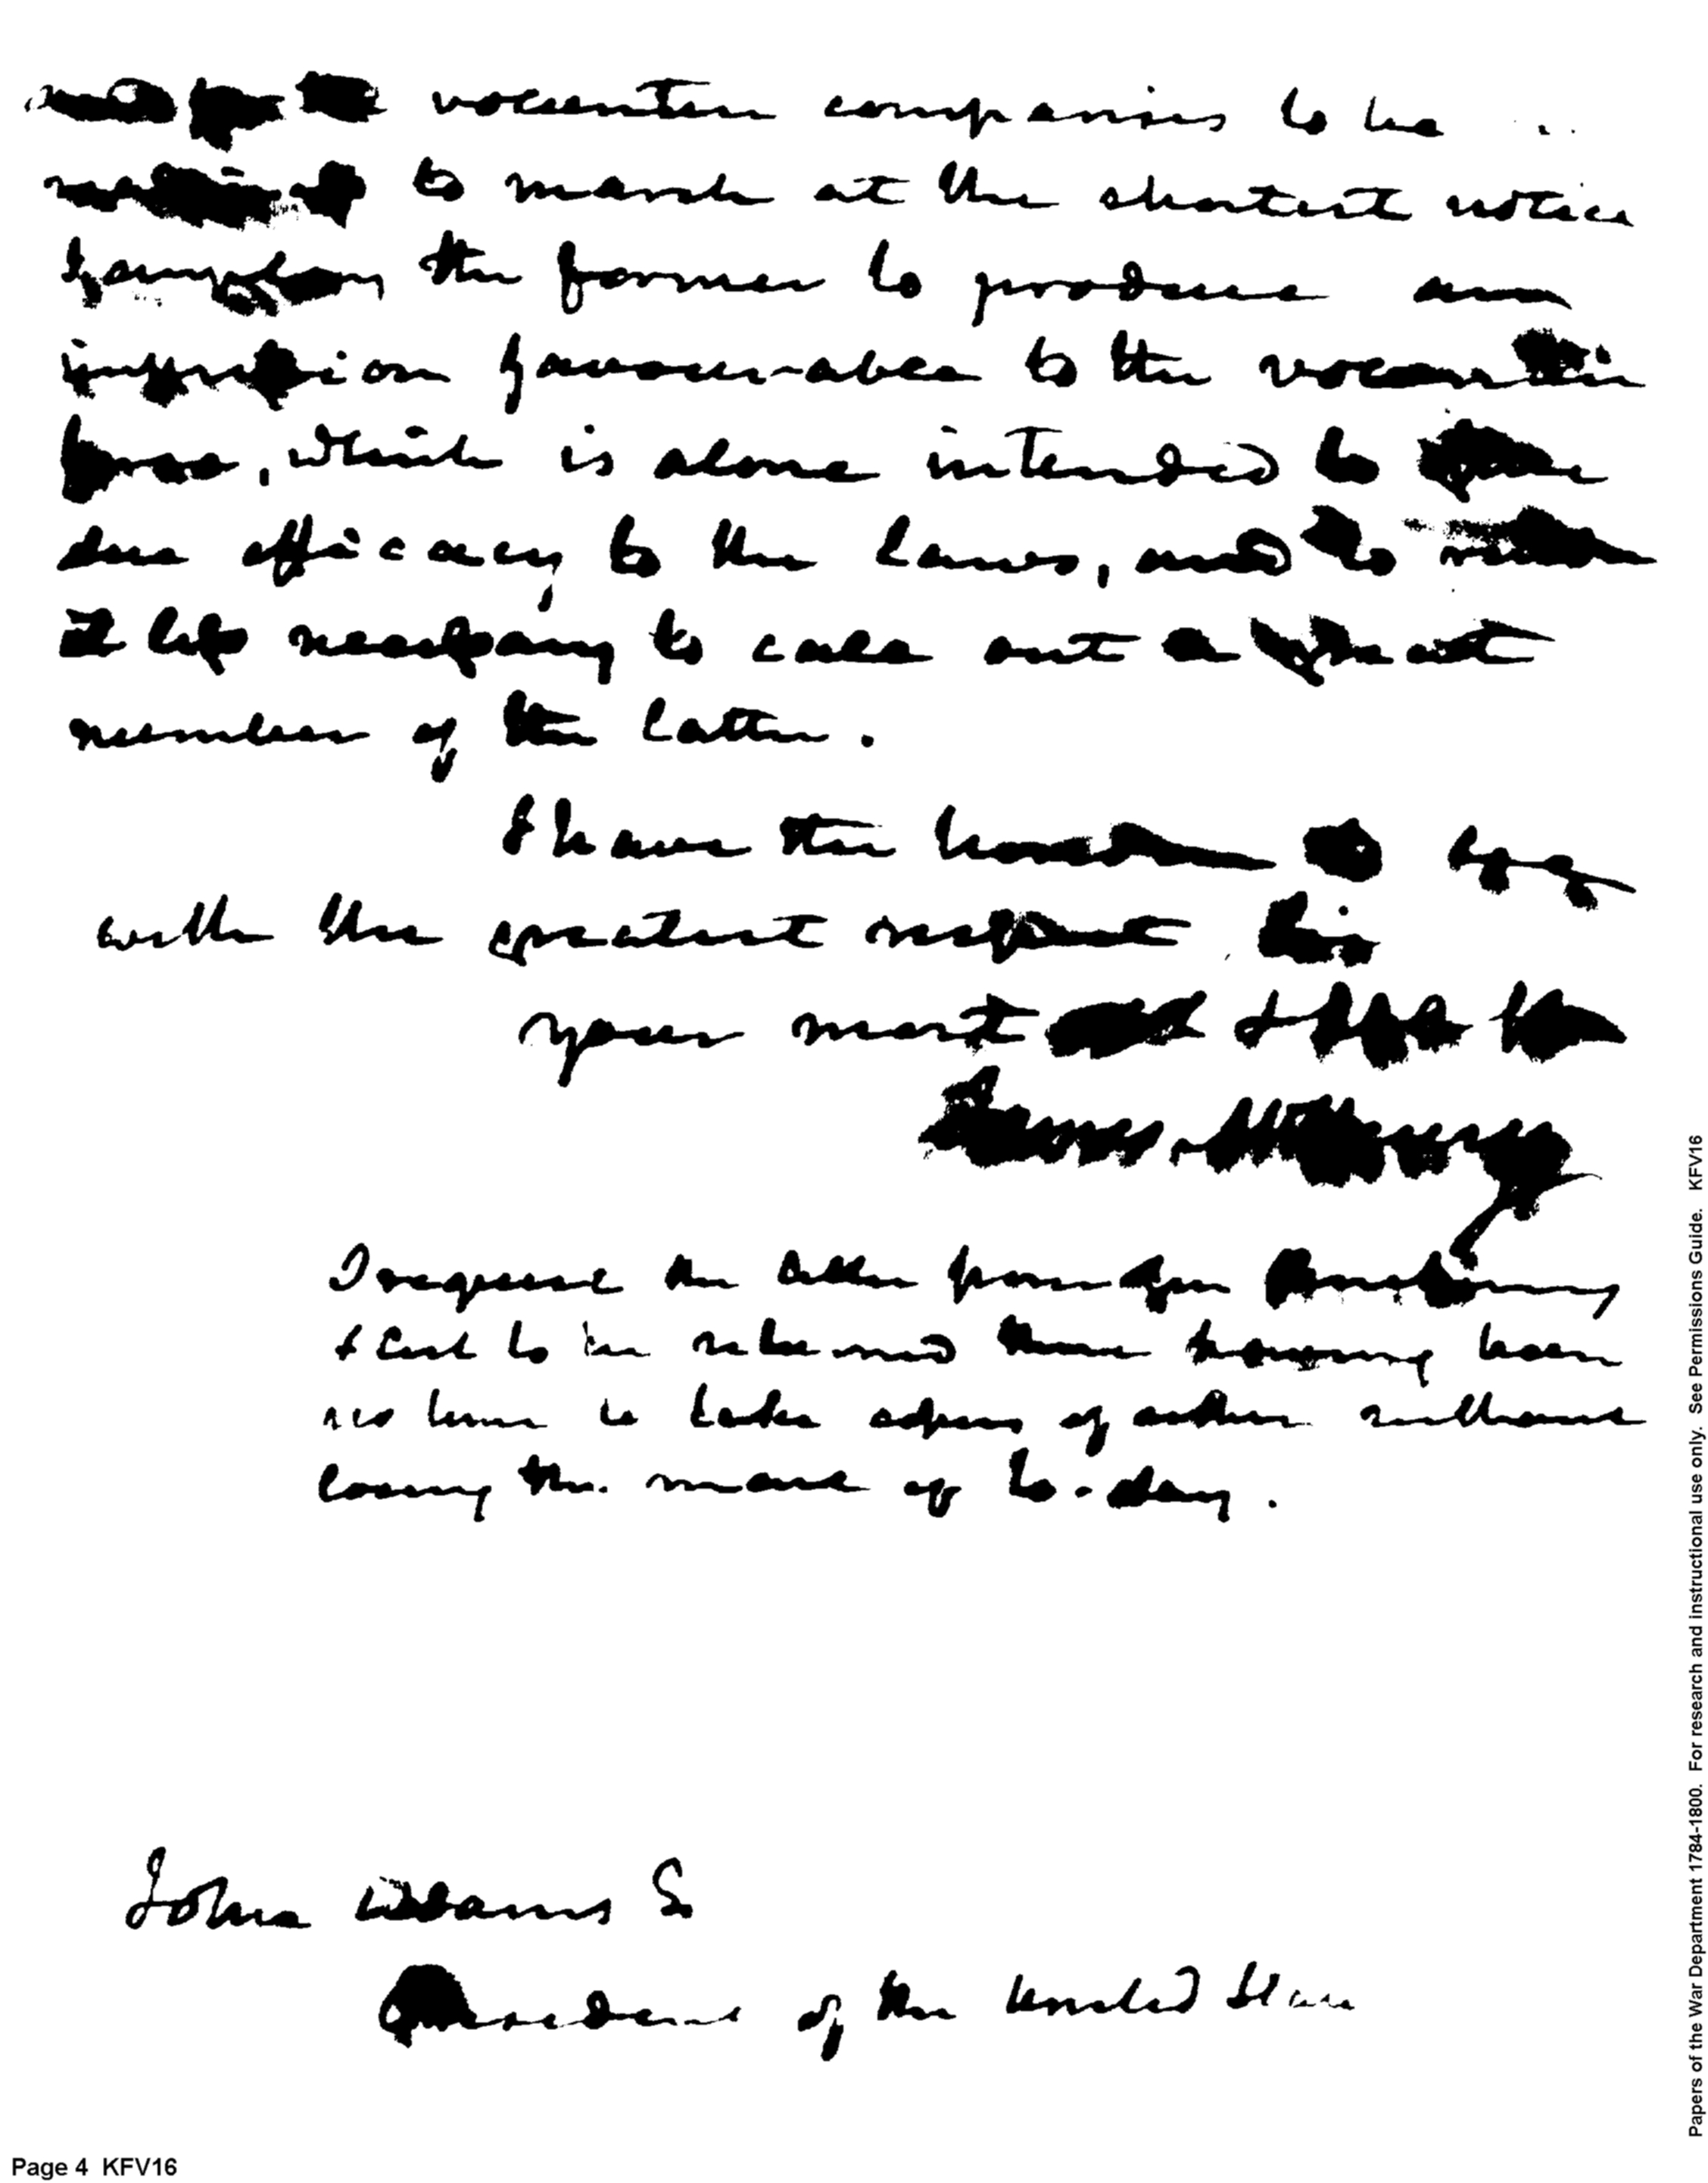 and for the volunteer companies to be
to march at the shortest notice
the former to produce an
impression favourable to the volunteer
force, which is alone intended to give
due efficacy to the laws, and to render
it less necessary to call out a great
number of the latter.
I have the honour to be
with the greatest respect Sir
your most ob & hble St
James McHenry
I request the letter from Gen
sent to be returned there having been
no time to take copies of either without
losing the mail of to-day.
John Adams
President of the United States
Page 4 KFV16
Papers of the War Department 1784-1800. For research and instructional use only. See Permissions Guide. KFV16